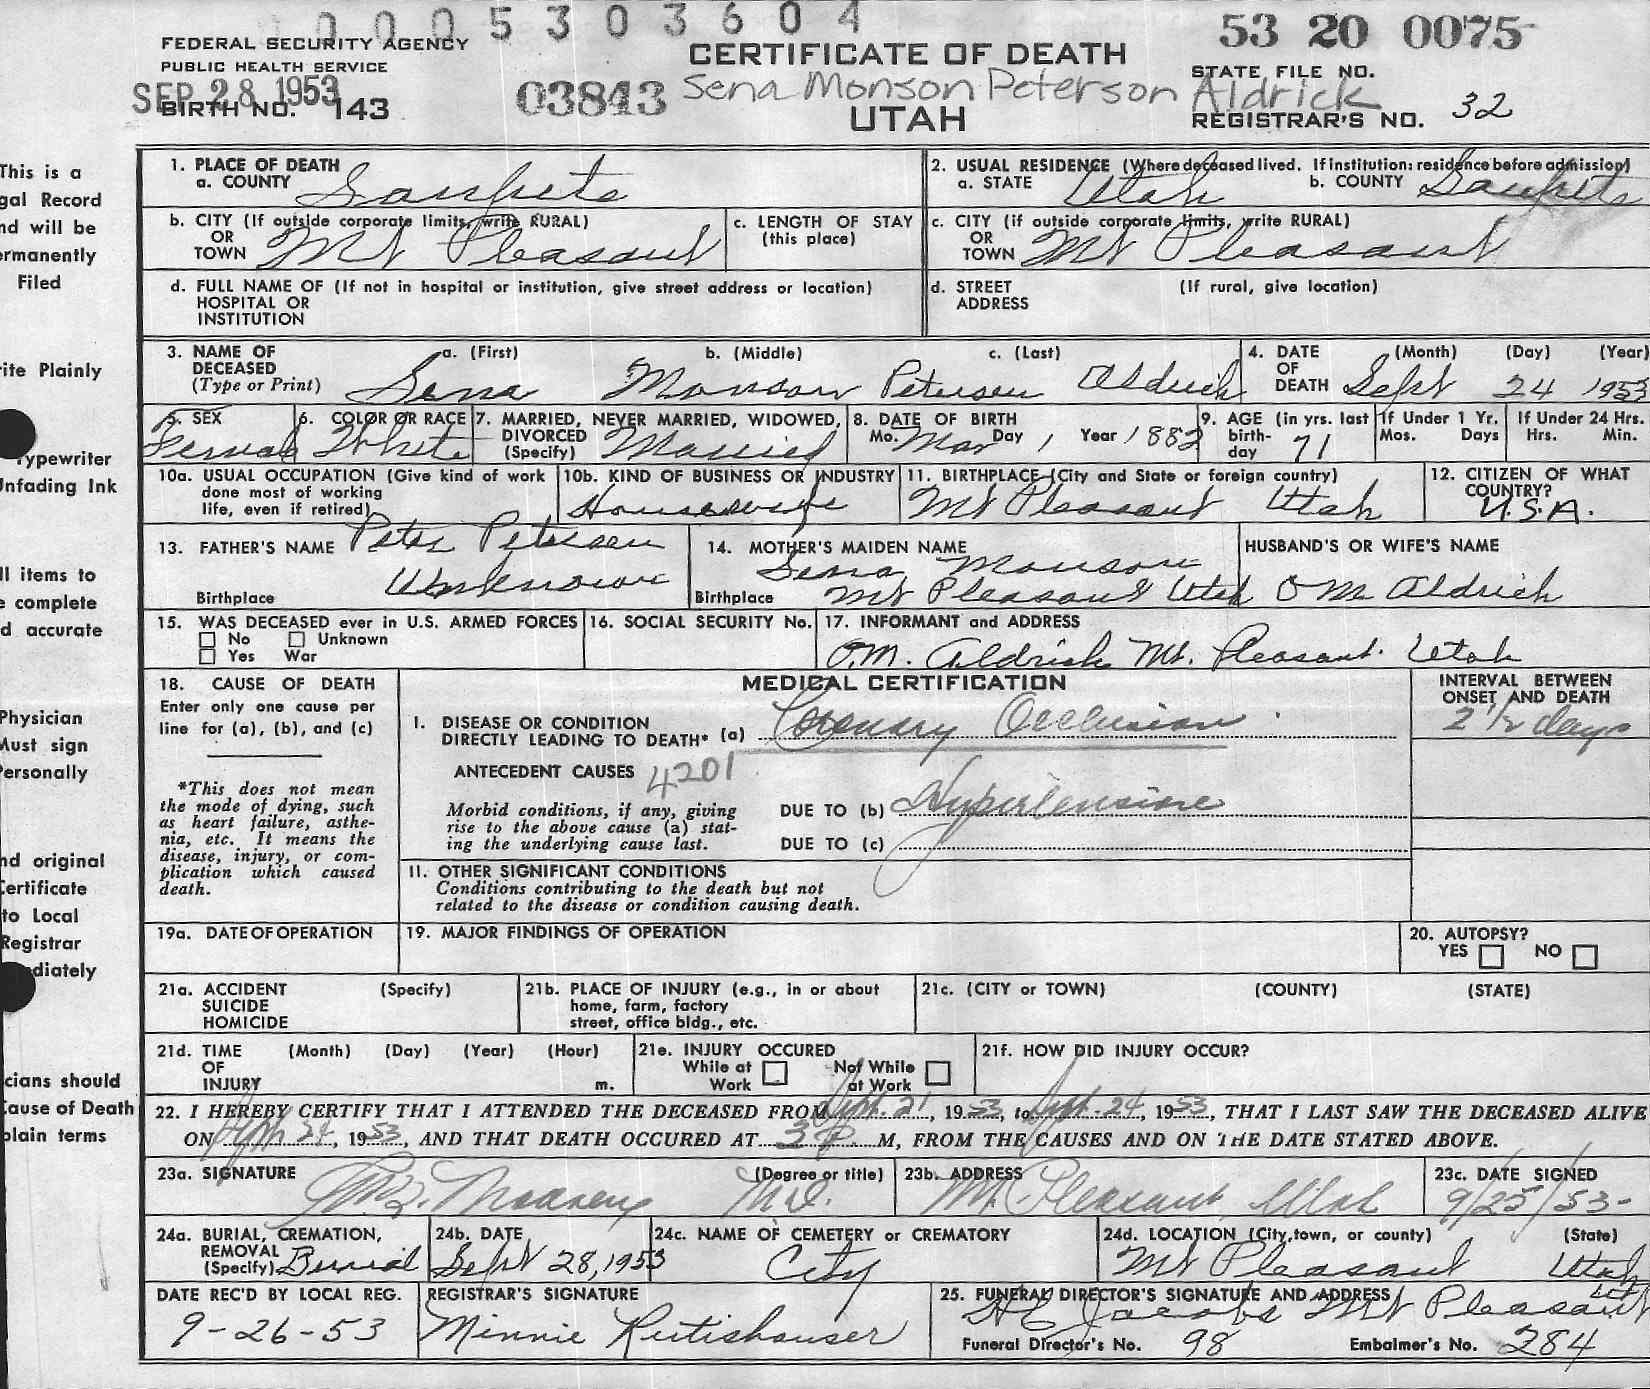 0005303604
FEDERAL SECURITY AGENCY
PUBLIC HEALTH SERVICE
SEP 28 1953
BIRTH NO. 143
03843
CERTIFICATE OF DEATH
Sena Monson Peterson Aldrick
UTAH
53 20 0075
STATE FILE NO.
REGISTRAR'S NO. 32
This is a
gal Record
nd will be
ermanently
Filed
rite Plainly
Typewriter
Unfading Ink
ll items to
e complete
d accurate
Physician
Must sign
Personally
nd original
Certificate
to Local
Registrar
ediately
cians should
Cause of Death
plain terms
1. PLACE OF DEATH
a. COUNTY Sanpete
2. USUAL RESIDENCE (Where deceased lived. If institution: residence before admission)
a. STATE Utah b. COUNTY Sanpete
b. CITY (If outside corporate limits, write RURAL)
OR
TOWN Mt Pleasant
c. LENGTH OF STAY
(this place)
c. CITY (if outside corporate limits, write RURAL)
OR
TOWN Mt Pleasant
d. FULL NAME OF (If not in hospital or institution, give street address or location)
HOSPITAL OR
INSTITUTION
d. STREET (If rural, give location)
ADDRESS
3. NAME OF a. (First) b. (Middle) c. (Last)
DECEASED
(Type or Print) Sena Monson Petersen Aldrich
4. DATE (Month) (Day) (Year)
OF
DEATH Sept 24 1953
5. SEX
Female
6. COLOR OR RACE
White
7. MARRIED, NEVER MARRIED, WIDOWED,
DIVORCED
(Specify) Married
8. DATE OF BIRTH
Mo. Mar Day 1 Year 1882
9. AGE (in yrs. last
birth-
day 71
If Under 1 Yr.
Mos. Days
If Under 24 Hrs.
Hrs. Min.
10a. USUAL OCCUPATION (Give kind of work
done most of working
life, even if retired)
10b. KIND OF BUSINESS OR INDUSTRY
Housewife
11. BIRTHPLACE (City and State or foreign country)
Mt Pleasant Utah
12. CITIZEN OF WHAT
COUNTRY?
U.S.A.
13. FATHER'S NAME Peter Petersen
Birthplace Unknown
14. MOTHER'S MAIDEN NAME
Sena Monson
Birthplace Mt Pleasant Utah
HUSBAND'S OR WIFE'S NAME
O M Aldrich
15. WAS DECEASED ever in U.S. ARMED FORCES
No Unknown
Yes War
16. SOCIAL SECURITY No.
17. INFORMANT and ADDRESS
O.M. Aldrich Mt. Pleasant. Utah
18. CAUSE OF DEATH
Enter only one cause per
line for (a), (b), and (c)
*This does not mean
the mode of dying, such
as heart failure, asthe-
nia, etc. It means the
disease, injury, or com-
plication which caused
death.
MEDICAL CERTIFICATION
I. DISEASE OR CONDITION
DIRECTLY LEADING TO DEATH* (a) Coronary Occlusion
ANTECEDENT CAUSES 4201
Morbid conditions, if any, giving
rise to the above cause (a) stat-
ing the underlying cause last.
DUE TO (b) Hypertension
DUE TO (c)
INTERVAL BETWEEN
ONSET AND DEATH
2 1/2 days
11. OTHER SIGNIFICANT CONDITIONS
Conditions contributing to the death but not
related to the disease or condition causing death.
19a. DATE OF OPERATION
19. MAJOR FINDINGS OF OPERATION
20. AUTOPSY?
YES NO
21a. ACCIDENT (Specify)
SUICIDE
HOMICIDE
21b. PLACE OF INJURY (e.g., in or about
home, farm, factory
street, office bldg., etc.
21c. (CITY or TOWN) (COUNTY) (STATE)
21d. TIME (Month) (Day) (Year) (Hour)
OF
INJURY m.
21e. INJURY OCCURED
While at Not While
Work at Work
21f. HOW DID INJURY OCCUR?
22. I HEREBY CERTIFY THAT I ATTENDED THE DECEASED FROM Sept. 21, 1953, to Sept. 24, 1953, THAT I LAST SAW THE DECEASED ALIVE
ON Sept 24, 1953, AND THAT DEATH OCCURED AT 3 P. M, FROM THE CAUSES AND ON THE DATE STATED ABOVE.
23a. SIGNATURE (Degree or title)
M.D.
23b. ADDRESS
Mt. Pleasant, Utah
23c. DATE SIGNED
9/25/53
24a. BURIAL, CREMATION,
REMOVAL
(Specify) Burial
24b. DATE
Sept 28, 1953
24c. NAME OF CEMETERY or CREMATORY
City
24d. LOCATION (City, town, or county) (State)
Mt Pleasant Utah
DATE REC'D BY LOCAL REG.
9-26-53
REGISTRAR'S SIGNATURE
Minnie Rutishauser
25. FUNERAL DIRECTOR'S SIGNATURE AND ADDRESS
Jacobs Mt Pleasant Utah
Funeral Director's No. 98 Embalmer's No. 284